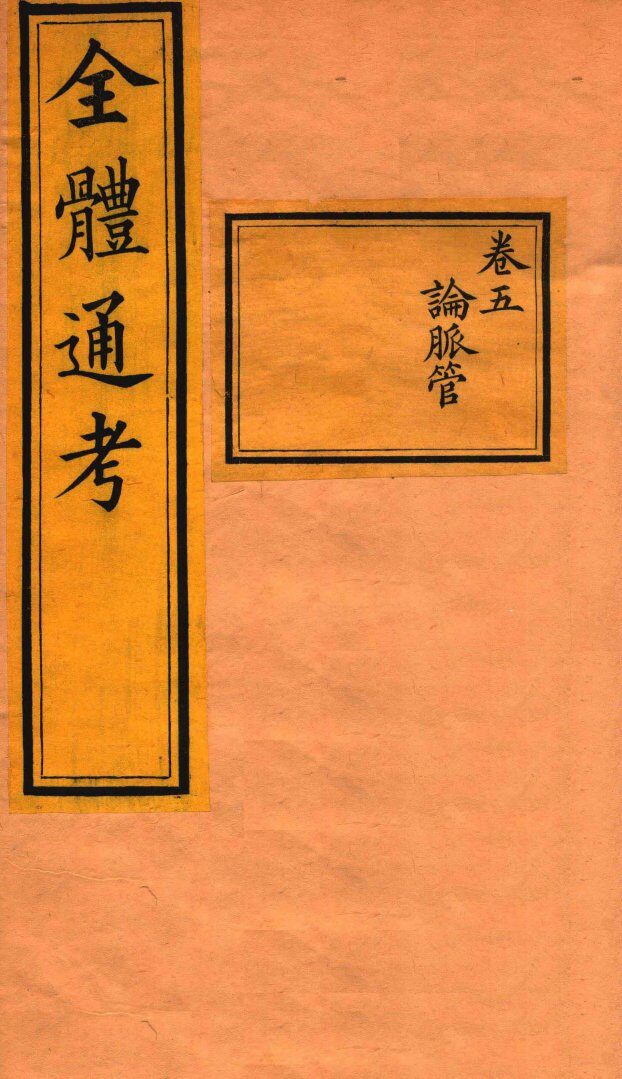 全體通考
卷五
論脈管